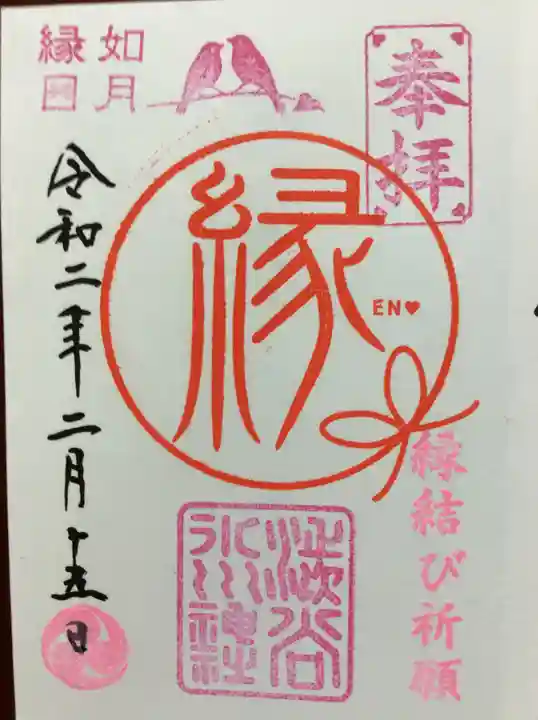 奉拝
如月
縁日
縁
EN♥
縁結び祈願
澁谷
氷川
神社
令和二年二月十五日